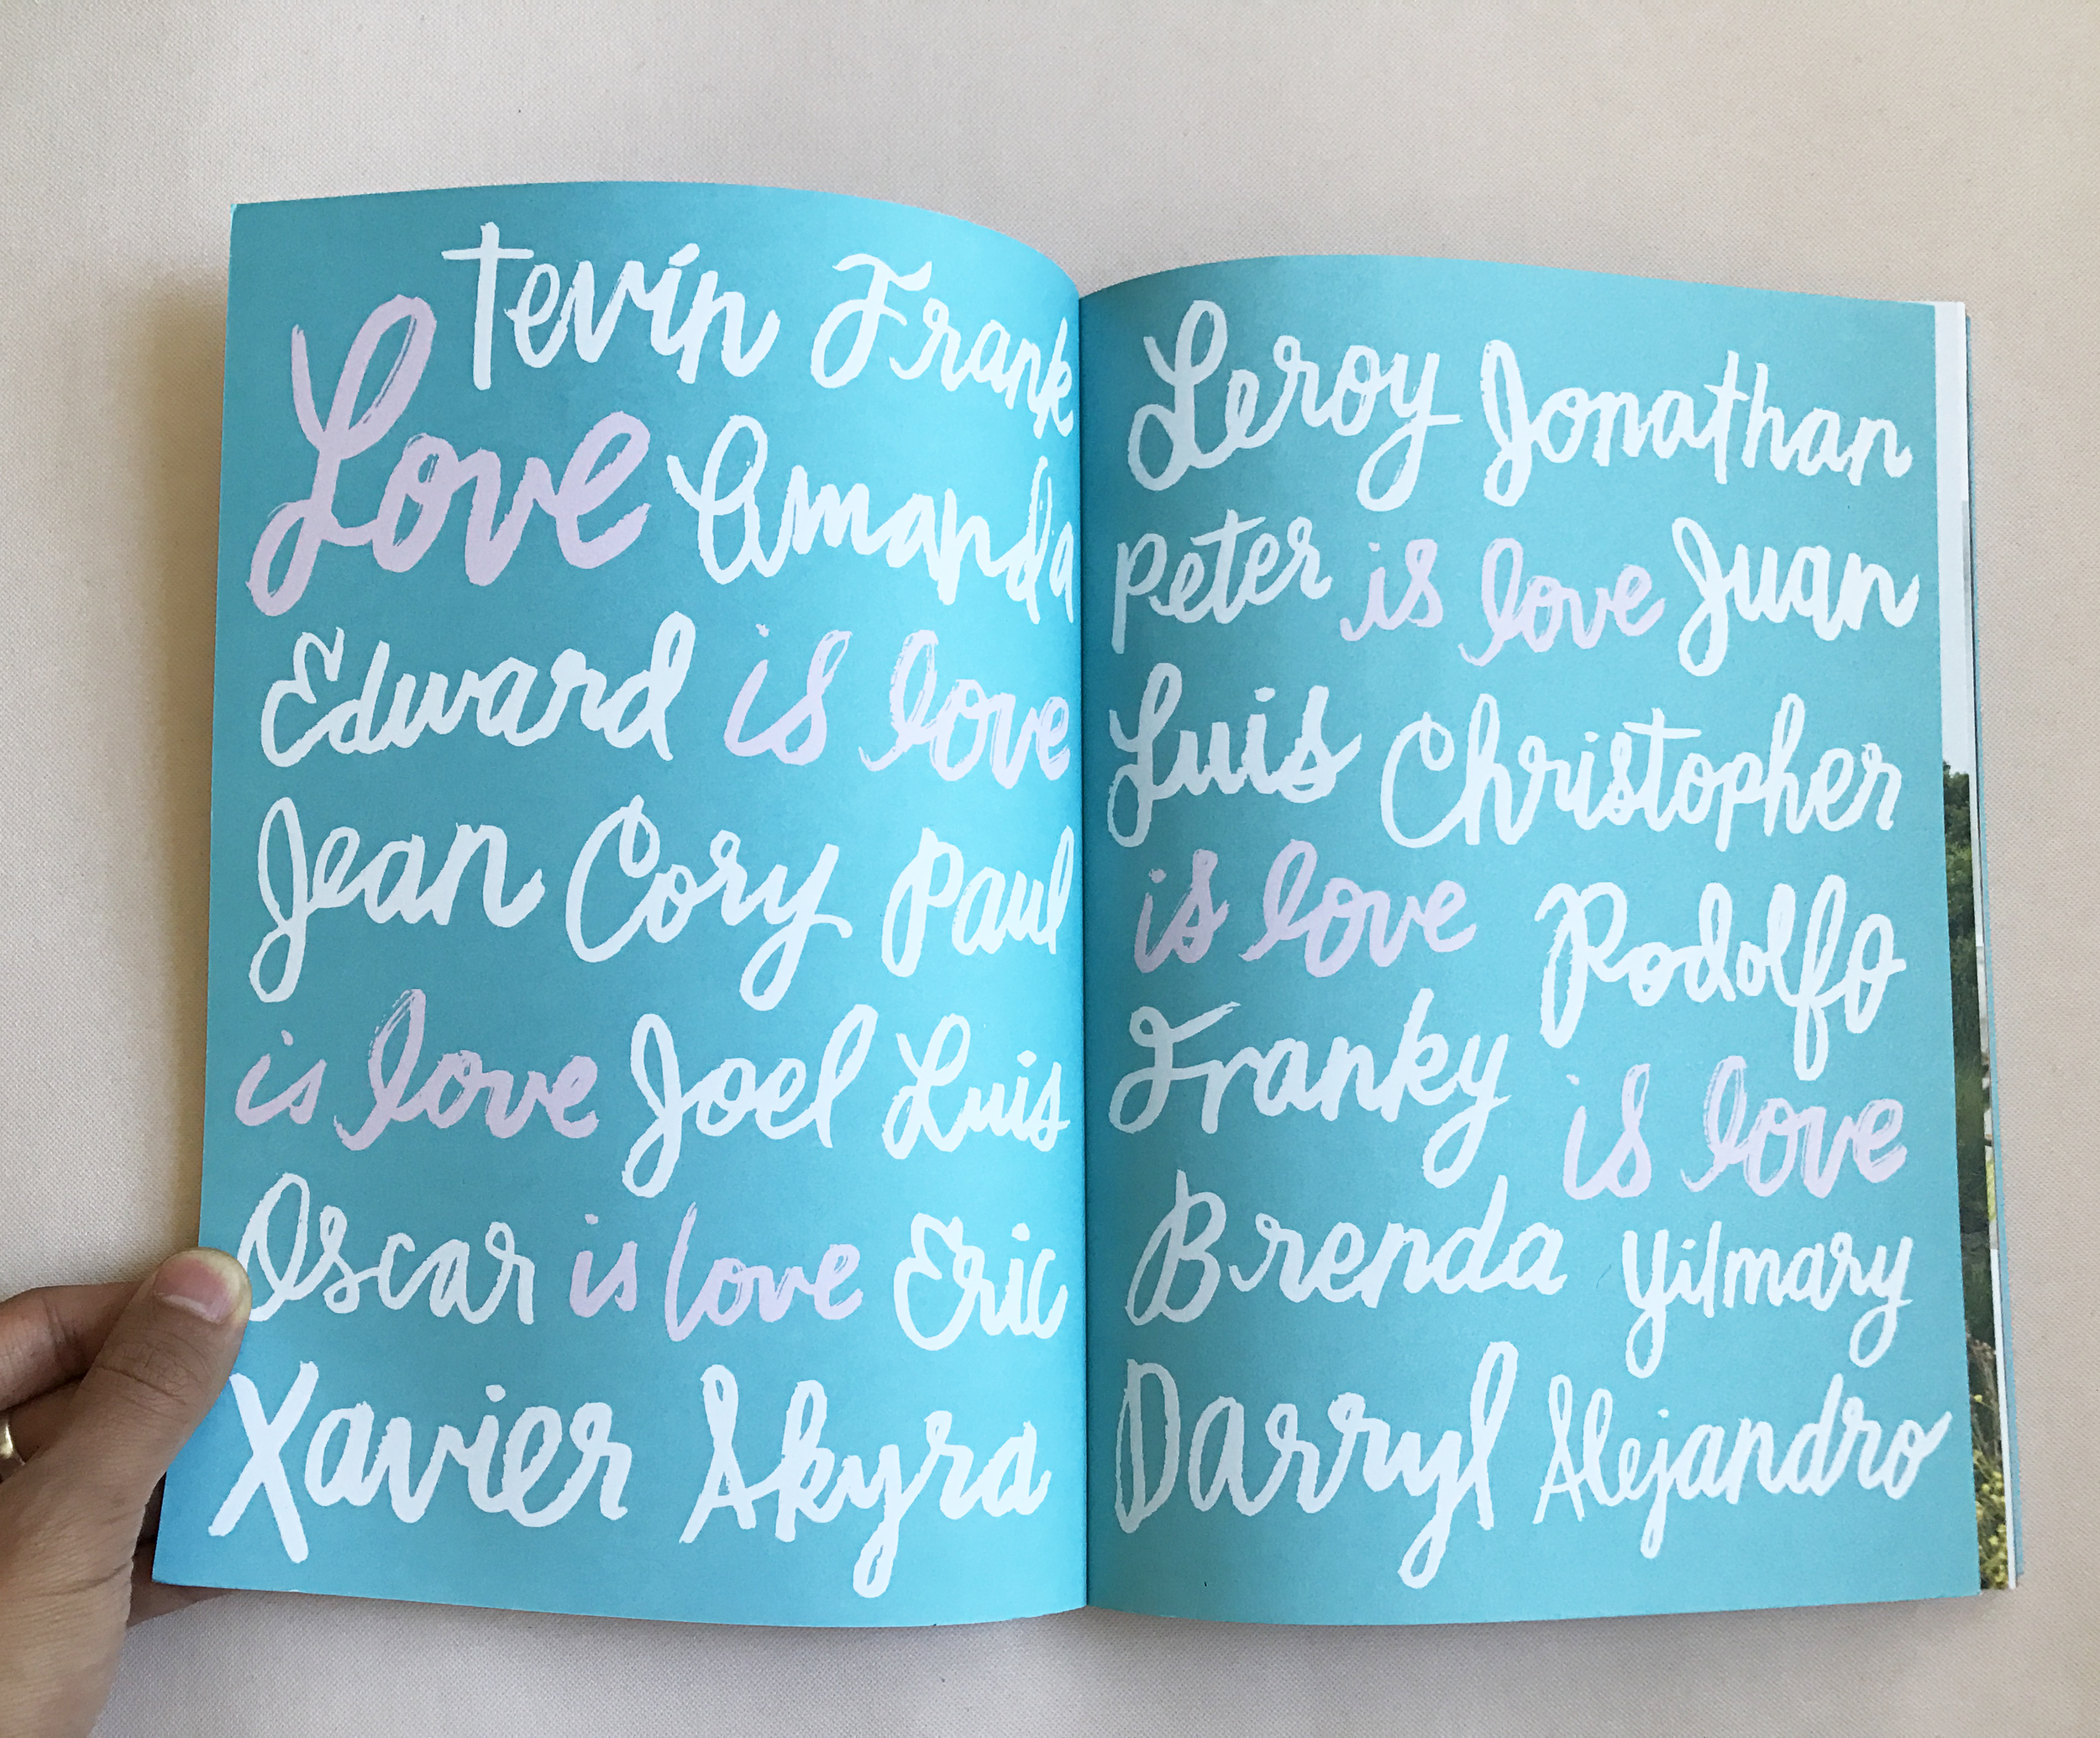 Tevin Frank
Love Amanda
Edward is love
Jean Cory Paul
is love Joel Luis
Oscar is love Eric
Xavier Akyra
Leroy Jonathan
Peter is love Juan
Luis Christopher
is love Rodolfo
Franky is love
Brenda Yilmary
Darryl Alejandro